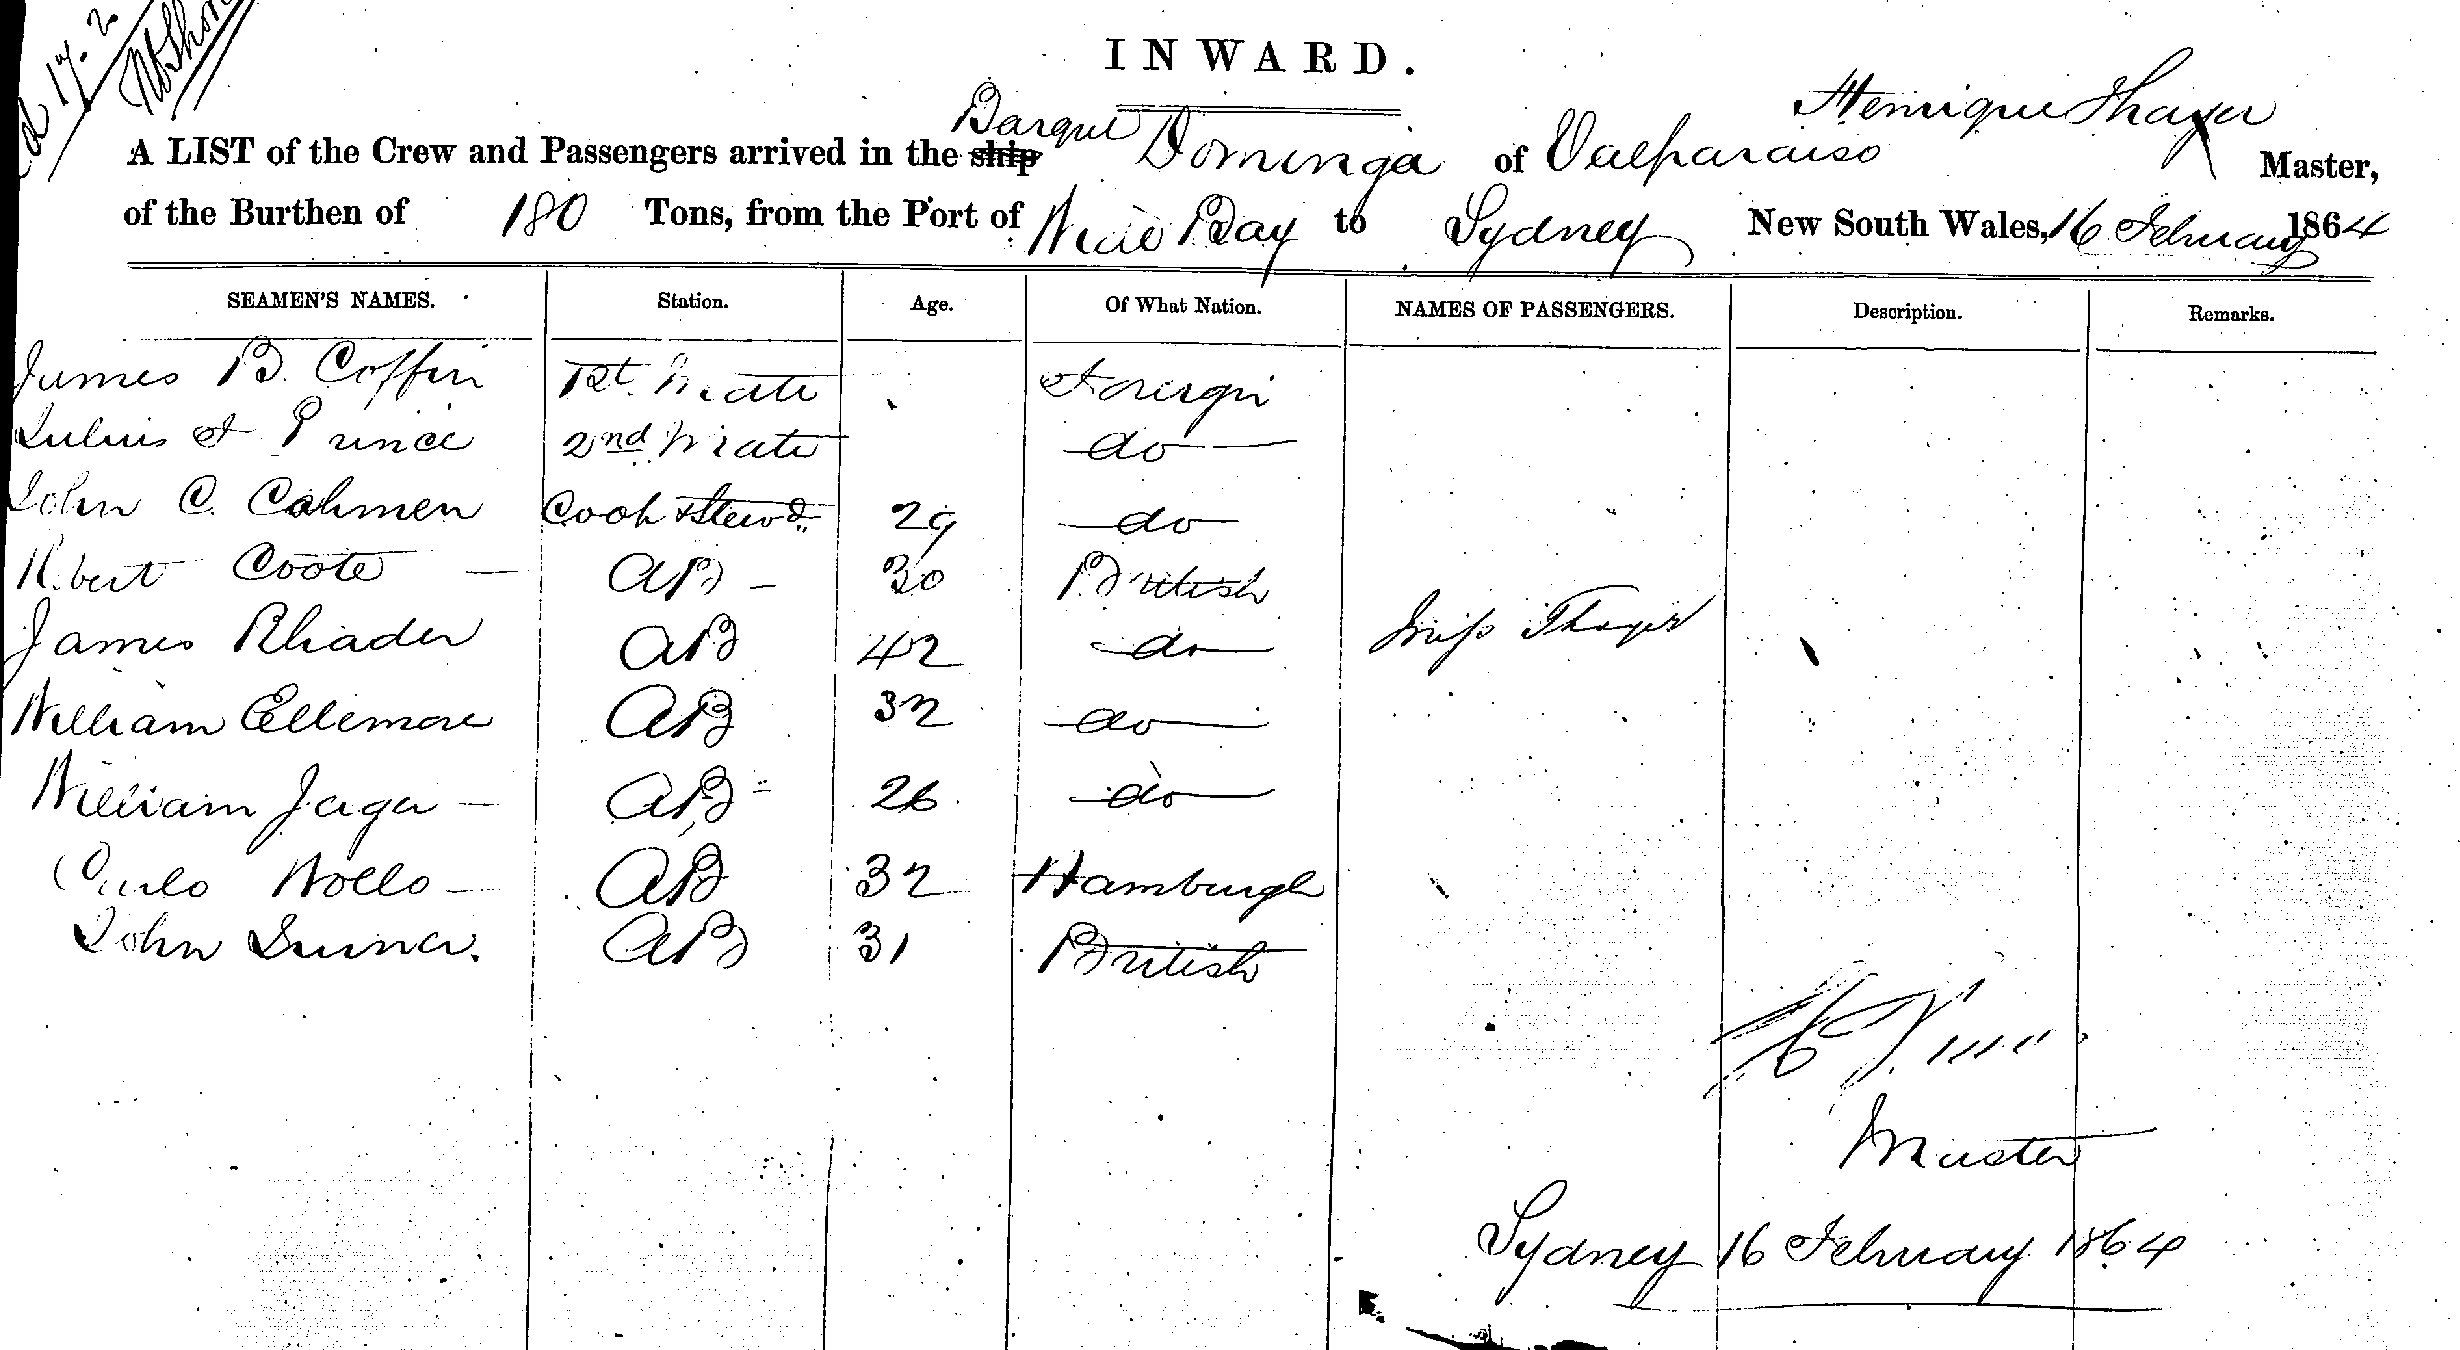 17. 2
INWARD.
Barque Henrique Thayer
A LIST of the Crew and Passengers arrived in the ship Dominga of Valparaiso Master,
of the Burthen of 180 Tons, from the Port of Wide Bay to Sydney New South Wales, 16 February 1864
SEAMEN'S NAMES. Station. Age. Of What Nation. NAMES OF PASSENGERS. Description. Remarks.
James B. Coffin 1st Mate Foreign
Julius F Prince 2nd Mate do
John C. Cahmen Cook & Stewd. 29 do
Robert Coote AB 30 British
James Rhader AB 42 do Miss Thayer
William Ellemore AB 32 do
William Jager AB 26 do
Carlo Nollo AB 32 Hamburgh
John AB 31 British
Master
Sydney 16 February 1864